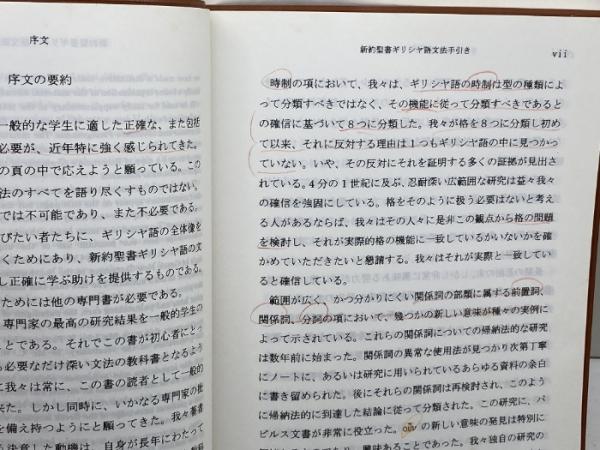 序文
序文の要約
一般的な学生に適した正確な、また包括
必要が、近年特に強く感じられてきた。
の頁の中で応えようと願っている。この
法のすべてを語り尽くすものではない。
では不可能であり、また不必要である。
びたい者たちに、ギリシヤ語の全体像を
くためにあり、新約聖書ギリシヤ語の文
し正確に学ぶ助けを提供するものである。
ためには他の専門書が必要である。
専門家の最高の研究結果を一般的学生の
ことである。それでこの書が初心者にとっ
も必要なだけ深い文法の教科書となるよう
に我々は常に、この書の読者として一般的
来た。しかし同時に、いかなる専門家の批
を備え持つようにと願ってきた。我々著者
決意した動機は、自身が長年にわたって
新約聖書ギリシヤ語文法手引き
vii
時制の項において、我々は、ギリシヤ語の時制は型の種類によ
って分類すべきではなく、その機能に従って分類すべきであると
の確信に基づいて8つに分類した。我々が格を8つに分類し初め
て以来、それに反対する理由は1つもギリシヤ語の中に見つかっ
ていない。いや、その反対にそれを証明する多くの証拠が見出さ
れている。4分の1世紀に及ぶ、忍耐深い広範囲な研究は益々我々
の確信を強固にしている。格をそのように扱う必要はないと考え
る人があるならば、我々はその人々に是非この観点から格の問題
を検討し、それが実際的格の機能に一致しているかいないかを確
かめていただきたいと懇請する。我々はそれが実際と一致してい
ると確信している。
範囲が広く、かつ分かりにくい関係詞の部類に属する前置詞、
関係詞、分詞の項において、幾つかの新しい意味が種々の実例に
よって示されている。これらの関係詞についての帰納法的な研究
は数年前に始まった。関係詞の異常な使用法が見つかり次第丁寧
にノートに、あるいは研究に用いられているあらゆる資料の余白
に書き留められた。後にそれらの関係詞は再検討され、このよう
に帰納法的に到達した結論に従って分類された。この研究に、パ
ピルス文書が非常に役立った。οὖν の新しい意味の発見は特別に
あることであった。我々独自の研究の